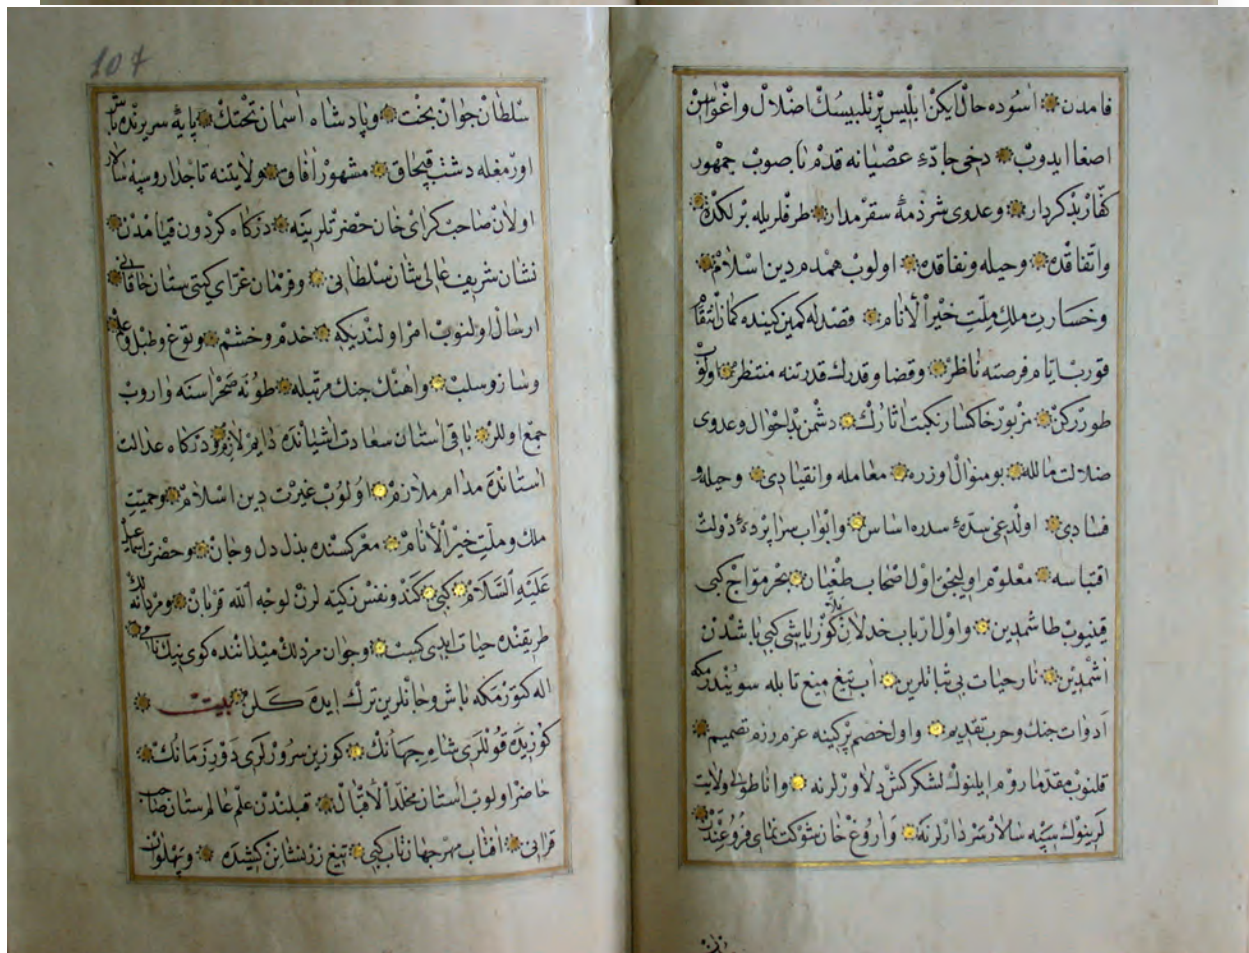 قامدن اسوده حال ايكن ابليس پرتلبيسك اضلال و اغواسن
اصغا ايدوب دخى جادهٔ عصيانه قدم باصوب جمهور
كفّار بدكردار وعدوى شرذمهٔ سقرمدار طرفلريله برلكده
واتفاقده وحيله ونفاقده اولوب همدم دين اسلام
وخسارت ملك ملّت خير الأنام قصدله كمين كينده كمان انتقام
قوروب ايام فرصته ناظر وقضا وقدرك قدرتنه منتظر اولوب
طوررکن مزبور خاكسار نكبت اثارك دشمن بداحوال وعدوى
ضلالت مالله بو منوال اوزره معامله وانقيادى وحيله و
فسادى اولدغى سدهٔ سدره اساس وابواب سراپردهٔ دولت
اقتباسه معلوم اوليجق اول اصحاب طغيان بحر مواج كبى
قينيوب طاشمدين واول ارباب خذلان كوزياشى كبى باشدن
اشمدين نار حيات بى ثباتلرين اب تيغ ميغ تابله سويندرمكه
ادوات جنك وحرب تقديم واول خصم پركينه عزم رزم تصميم
قلنوب مقدما روم ايلينوك لشكركش دلاورلرنه واناطولى ولايت
لرينوك سپه سالار سردارلرنه واروغ خان شوكت نماى فروغ
سلطان جوان بخت وپادشاه اسمان تختك پايهٔ سريرنده
اورمغله دشت قپچاق مشهور افاق ولايتنه تاجدار وسپه سالار
اولان صاحب كراى خان حضرتلرينه دركاه كردون قيامدن
نشان شريف عالى شان سلطانى وفرمان غراى كيتى ستان خاقانى
ارسال اولنوب امر اولنديكه خدم وحشم وتوغ وطبل وعلم
وساز وسلب واهنك جنك مرتبله طونه صحراسنه واروب
جمع اوللر باقى استان سعادت اشيانده دايم لازم ودركاه عدالت
استانده مدام ملازم اولوب غيرت دين اسلام وحميت
ملك وملّت خير الأنام معركسنده بذل دل وجان وحضرت اسماعيل
عليه السلام كبى كندو نفس زكيه لرن لوجه الله قربان ومردانه لك
طريقنده حيات ابدى كسب وجوان مردلك ميداننده كوى نيك نامى
اله كتورمكه باش وجانلرين ترك ايده كلن بيت
كوزيده قوللرى شاه جهانك كوزين سرورلرى دور زمانك
حاضر اولوب استان مخلد الأقبال قبلندن علم عالم ستان صاحب
قرانى افتاب مهر جهانتاب كبى تيغ زرنشانن كشيده وپهلوان